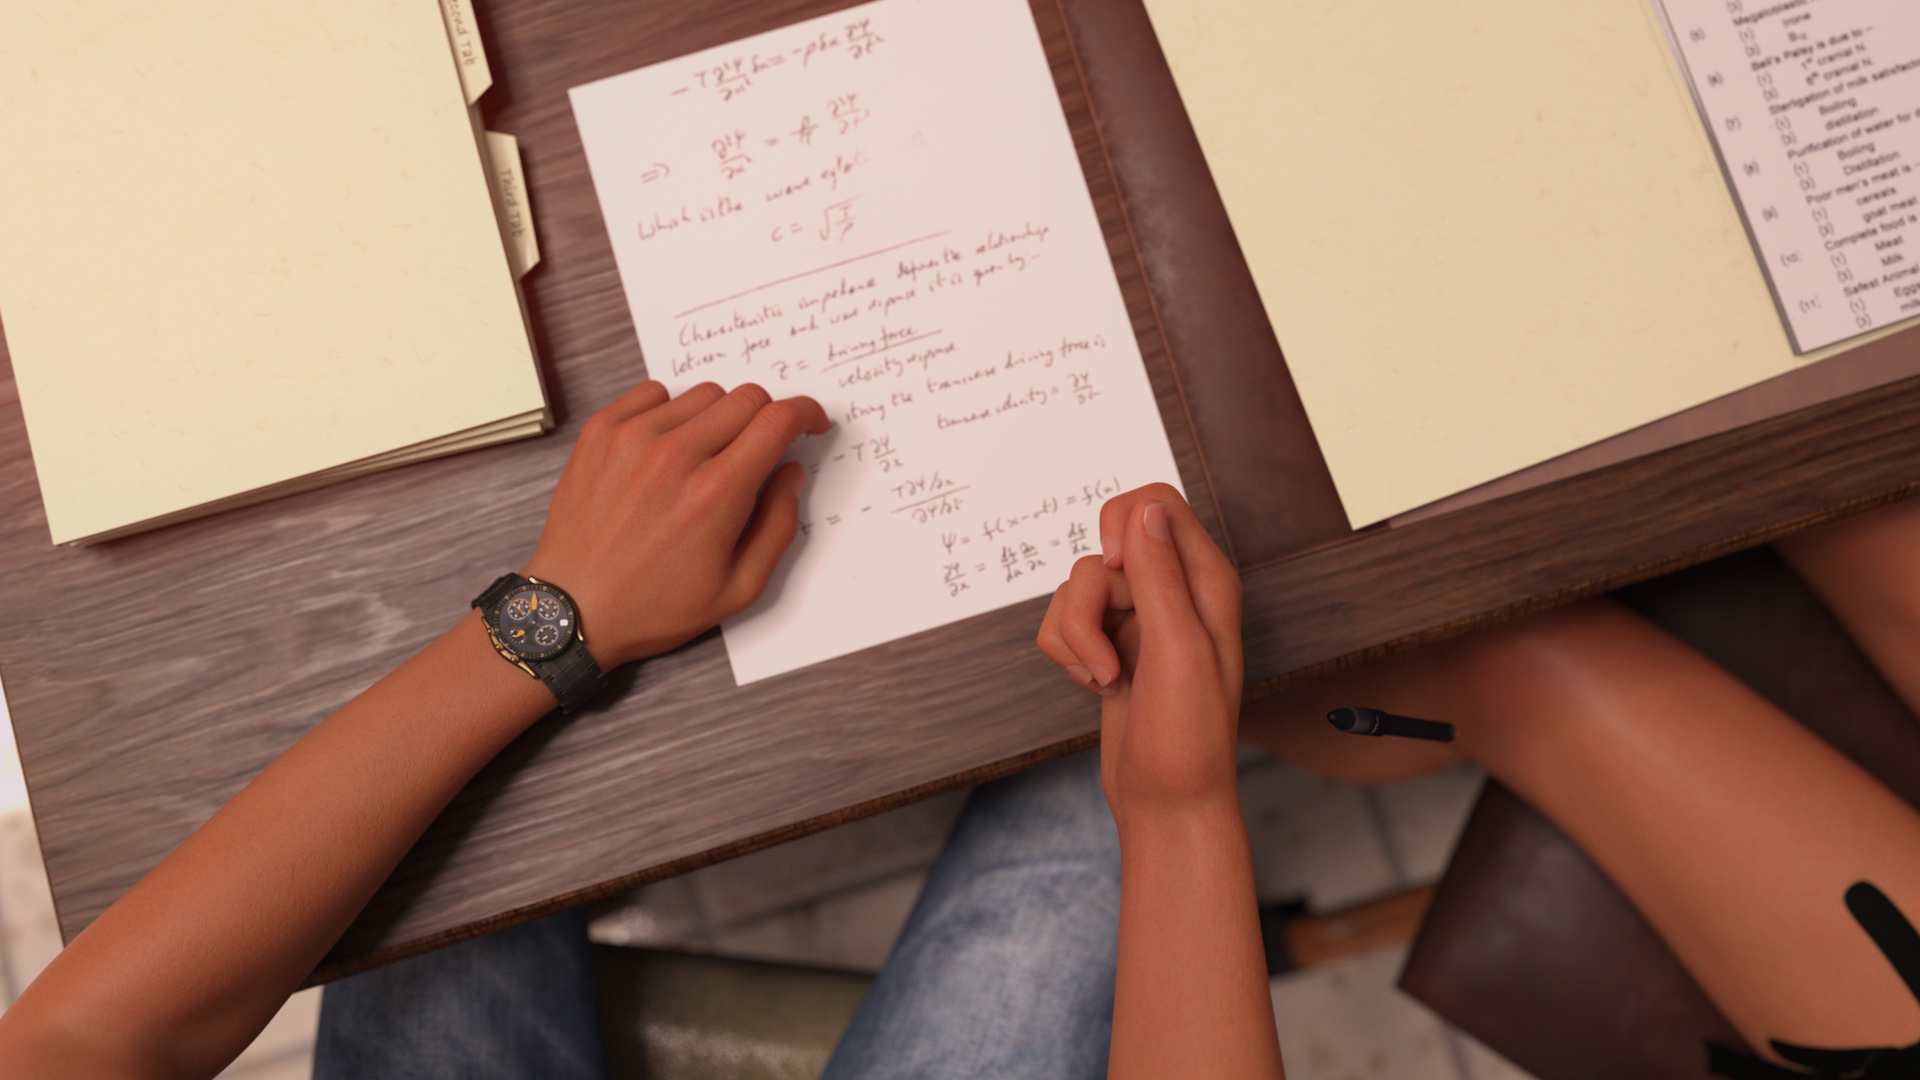 Second Tab
Third Tab
- T ∂²Ψ/∂x² δx = -ρδx ∂²Ψ/∂t²
⇒ ∂²Ψ/∂x² = ρ/T ∂²Ψ/∂t²
What is the wave
c = √T/ρ
Characteristic impedance defines the relationship
between force and wave response it is given by:-
Z = driving force / velocity response
string the transverse driving force is
transverse velocity = ∂Ψ/∂t
= - T ∂Ψ/∂x
= - T∂Ψ/∂x / ∂Ψ/∂t
Ψ = f(x-ct) = f(u)
∂Ψ/∂x = df/du ∂u/∂x = df/du
(3)
(5) Megaloblastic
(1) Irone
(3) B₁₂
(6) Bell's Palsy is due to –
(1) 1st cranial N.
(3) 6th cranial N.
(7) Sterligation of milk satisfactio
(1) Boiling
(3) distillation
(8) Purification of water for d
(1) Boiling
(3) Distillation
(9) Poor men's meat is –
(1) cereals
(3) goat meat
(10) Complete food is
(1) Meat
(3) Milk
(11) Safest Animal
(1) Eggs
(3) milk